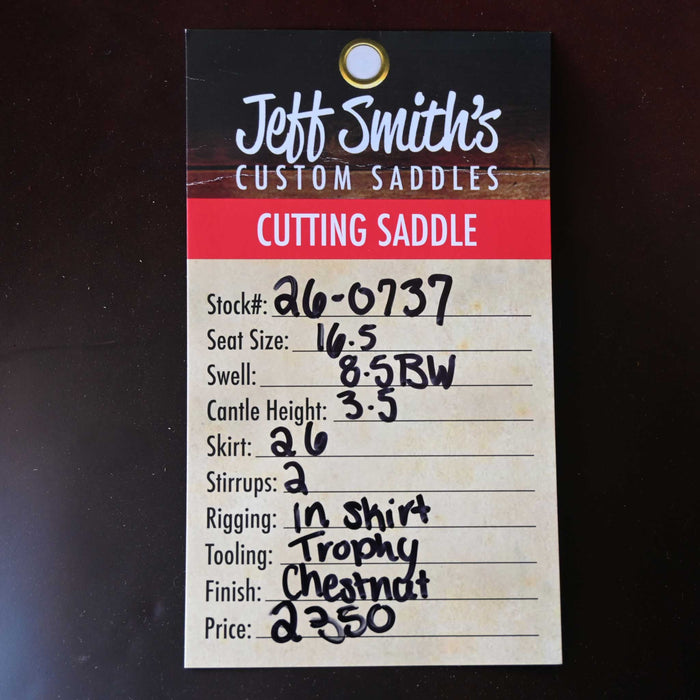 Jeff Smith's
CUSTOM SADDLES
CUTTING SADDLE
Stock#: 26-0737
Seat Size: 16.5
Swell: 8.5BW
Cantle Height: 3.5
Skirt: 26
Stirrups: 2
Rigging: In Skirt
Tooling: Trophy
Finish: Chestnut
Price: 2350